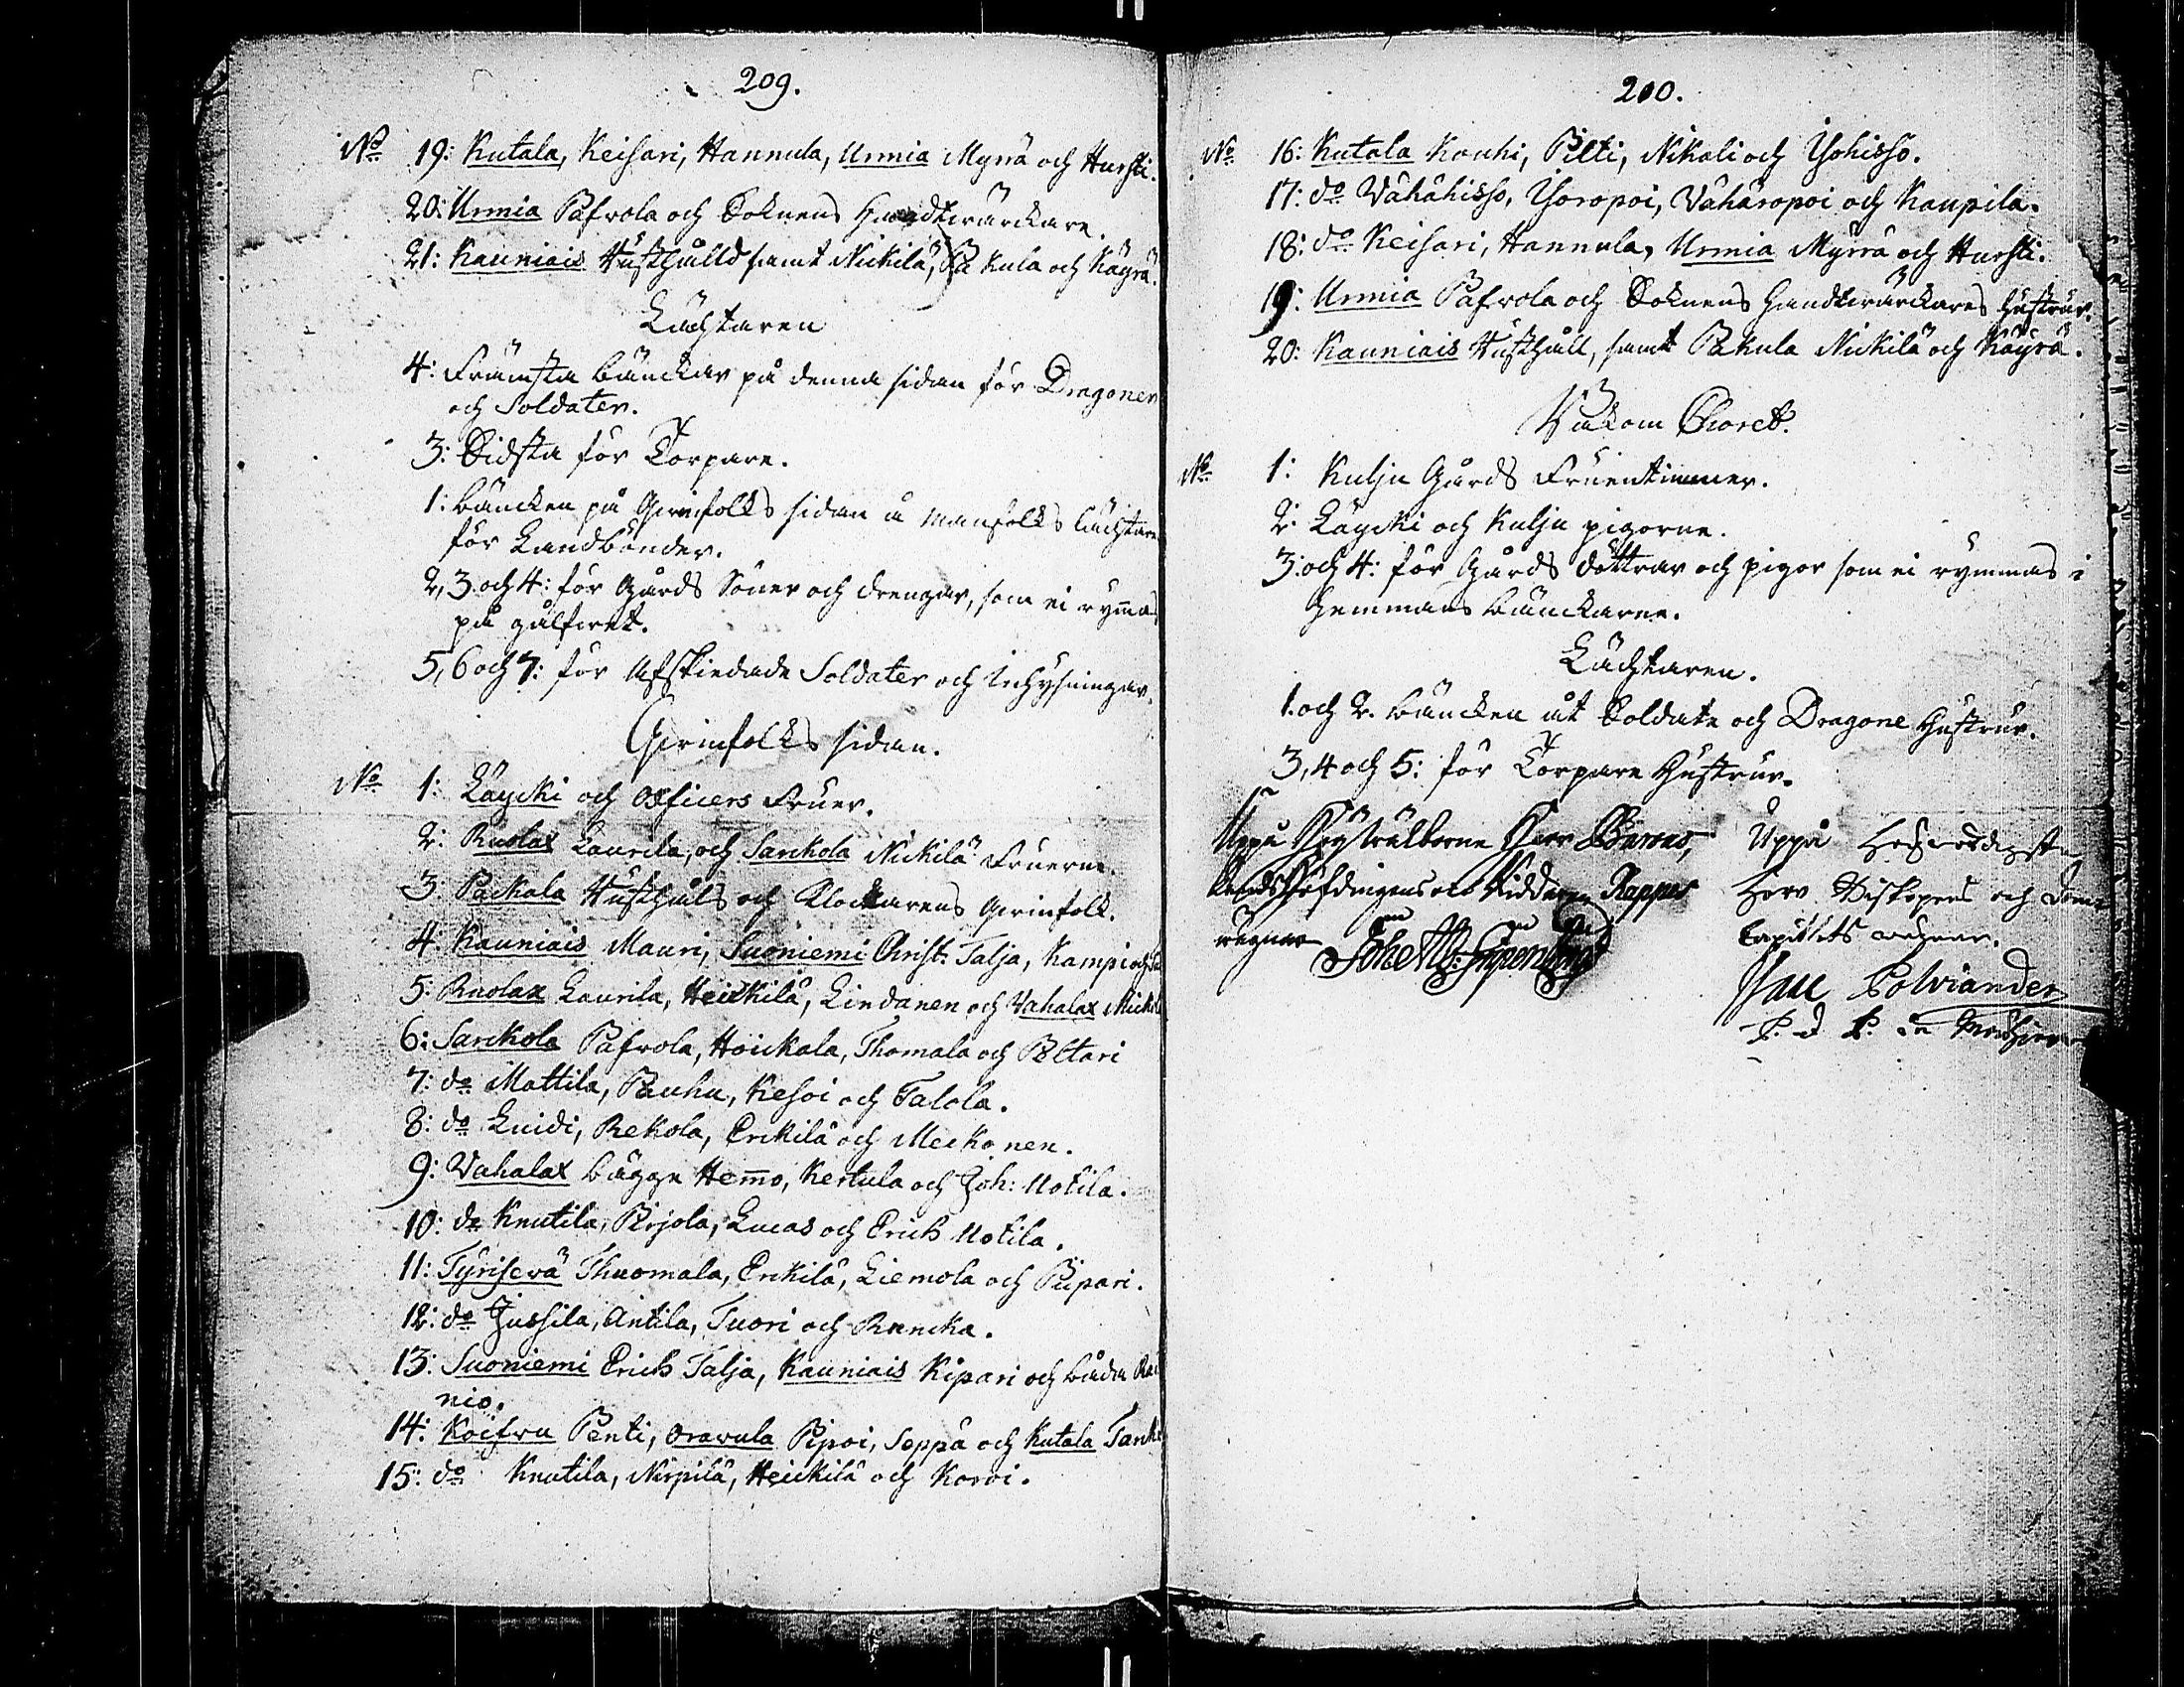 209.
No 19: Kutala, Keisari, Hannula, Urmia Myrrä och Hursti.
20: Urmia Pafvola och Soknens Handtvärckare.
21: Kauniais Rusthålld samt Nickilä, Pakula och Käyrä.
Lächtaren
4: Främsta bänckar på denna sidan för Dragoner
och Soldater.
3: Sidsta för Torpare.
1: bäncken på Qvinfolks sidan å Manfolks lächtaren
för Landbönder.
2, 3. och 4: för Gårds Söner och drengar, som ei rymas
på gålfvet.
5, 6 och 7: för Afskiedade Soldater och Inhysningar.
Qvinfolks sidan.
No 1: Läycki och Officers Fruer.
2: Ruolax Laurila, och Sarckola Nickilä Fruerne.
3: Packala Rusthåls och Klockarens Qvinfolk.
4: Kauniais Mauri, Suoniemi Christ: Talja, Kampi och
5: Ruolax Laurila, Heickilä, Lindanen och Vahalax Mickola
6: Sarckola Pafvola, Hoickala, Thomala och Peltari
7: do Mattila, Pauhu, Kesoi och Talola.
8: do Luidi, Rekola, Erckilä och Meckonen.
9: Vahalax bägge Hemo, Kertula och Joh: Uotila.
10: do Knutila, Pirjola, Lucas och Erich Uotila.
11: Tyrisevä Thuomala, Erckilä, Liemola och Piipari.
12: do Jussila, Antila, Tuori och Runcka.
13: Suoniemi Erich Talja, Kauniais Kipari och båda Rau
nio.
14: Koifvu Penti, Oravula Pipoi, Seppä och Kutala Tarck
15: do Knutila, Nirpilä, Heickilä och Korvi.
210.
No 16: Kutala Kouhi, Pilti, Nikali och Isohisso.
17: do Vähähisso, Isoropoi, Vähäropoi och Kaupila.
18: do Keisari, Hannula, Urmia Myrrä och Hursti.
19: Urmia Pafvola och Soknens Handtvärckares hustrur.
20: Kauniais Rusthåll, samt Pakula Nickilä och Käyrä.
Bakom Choret.
No 1: Kulju Gårds Fruentimmer.
2: Läycki och Kulju pigorne.
3: och 4: för Gårds döttrar och pigor som ei rymmas i
Hemmans bänckarne.
Lächtaren.
1. och 2. bäncken åt Soldate och Dragone Hustrur.
3, 4 och 5: för Torpare Hustrur.
Uppå Högvälborne Herr Barons,
Landshöfdingens och Riddaren Rappes
vägnar
Uppå Högvördigste
Herr Biskopens och Dom
Capitlets vägnar.
Isac Polviander